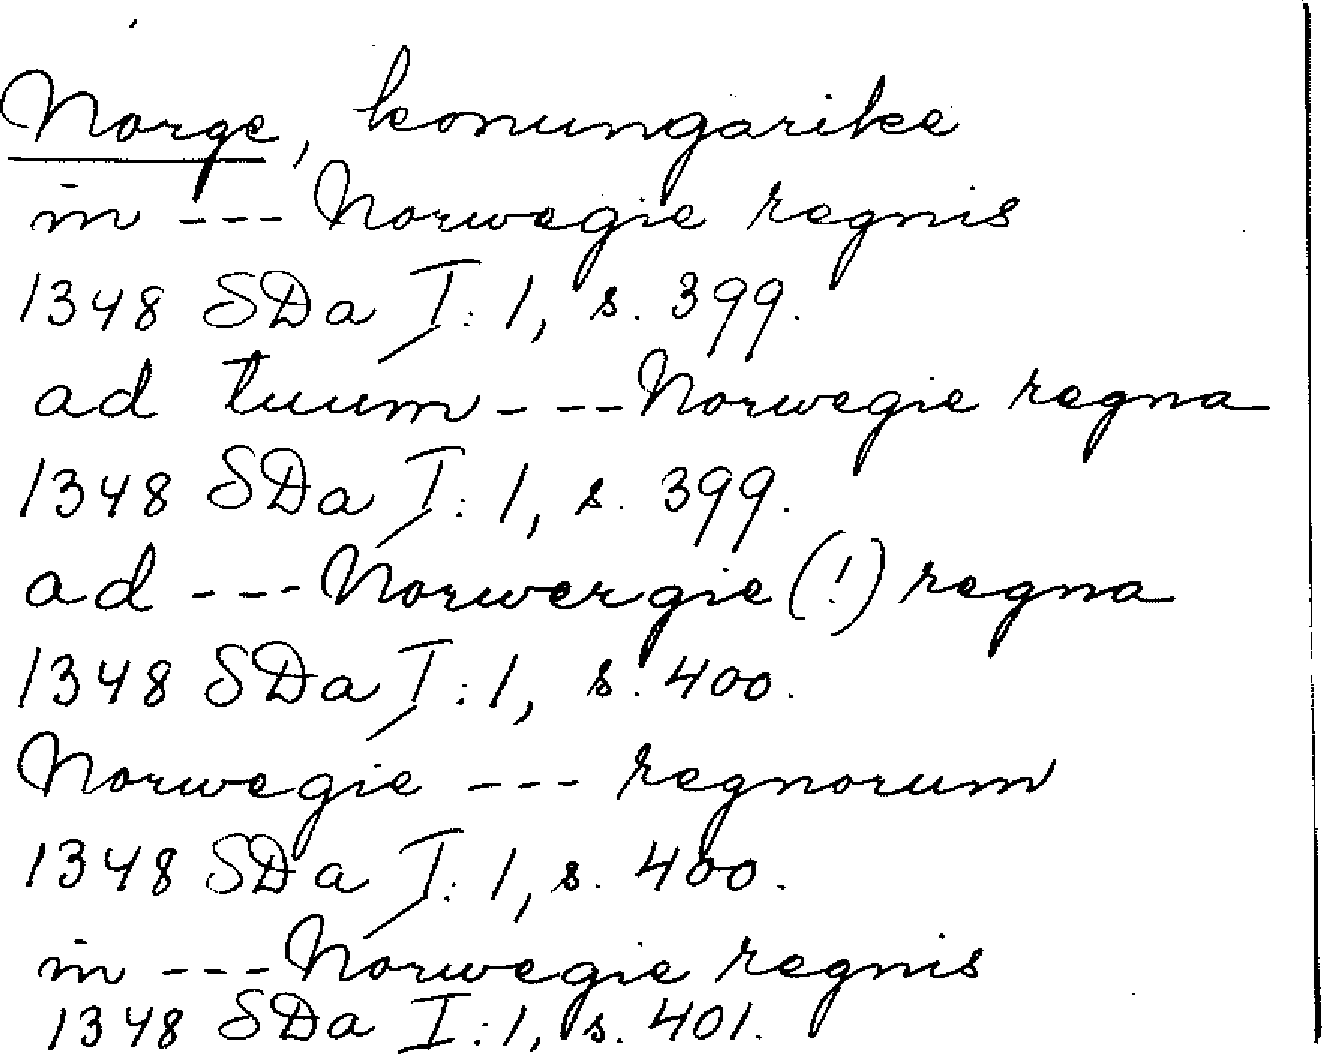 Norge, konungarike
in --- Norwegie regnis
1348 SDa I:1, s. 399.
ad tuum --- Norwegie regna
1348 SDa I:1, s. 399.
ad --- Norwergie (!) regna
1348 SDa I:1, s. 400.
Norwegie --- regnorum
1348 SDa I:1, s. 400.
in --- Norwegie regnis
1348 SDa I:1, s. 401.